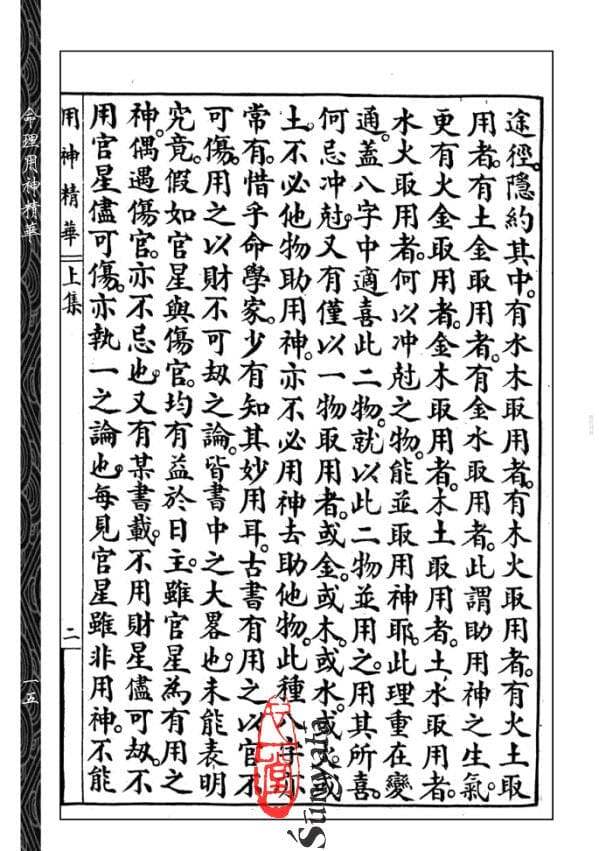 途徑。隱約其中。有水木取用者。有木火取用者。有火土取
用者。有土金取用者。有金水取用者。此謂助用神之生氣。
更有火金取用者。金木取用者。木土取用者。土水取用者。
水火取用者。何以冲尅之物。能並取用神耶。此理重在變
通。蓋八字中適喜此二物。就以此二物並用之。用其所喜。
何忌冲尅。又有僅以一物取用者。或金。或木。或水。或火。或
土。不必他物助用神。亦不必用神去助他物。此種八字。亦
常有。惜乎命學家。少有知其妙用耳。古書有用之以官不
可傷。用之以財不可刼之論。皆書中之大畧也。未能表明
究竟。假如官星與傷官。均有益於日主。雖官星為有用之
神。偶遇傷官。亦不忌也。又有某書載。不用財星儘可刼。不
用官星儘可傷。亦執一之論也。每見官星雖非用神。不能
用神精華 上集
二
命理用神精華
一五
Sunyata